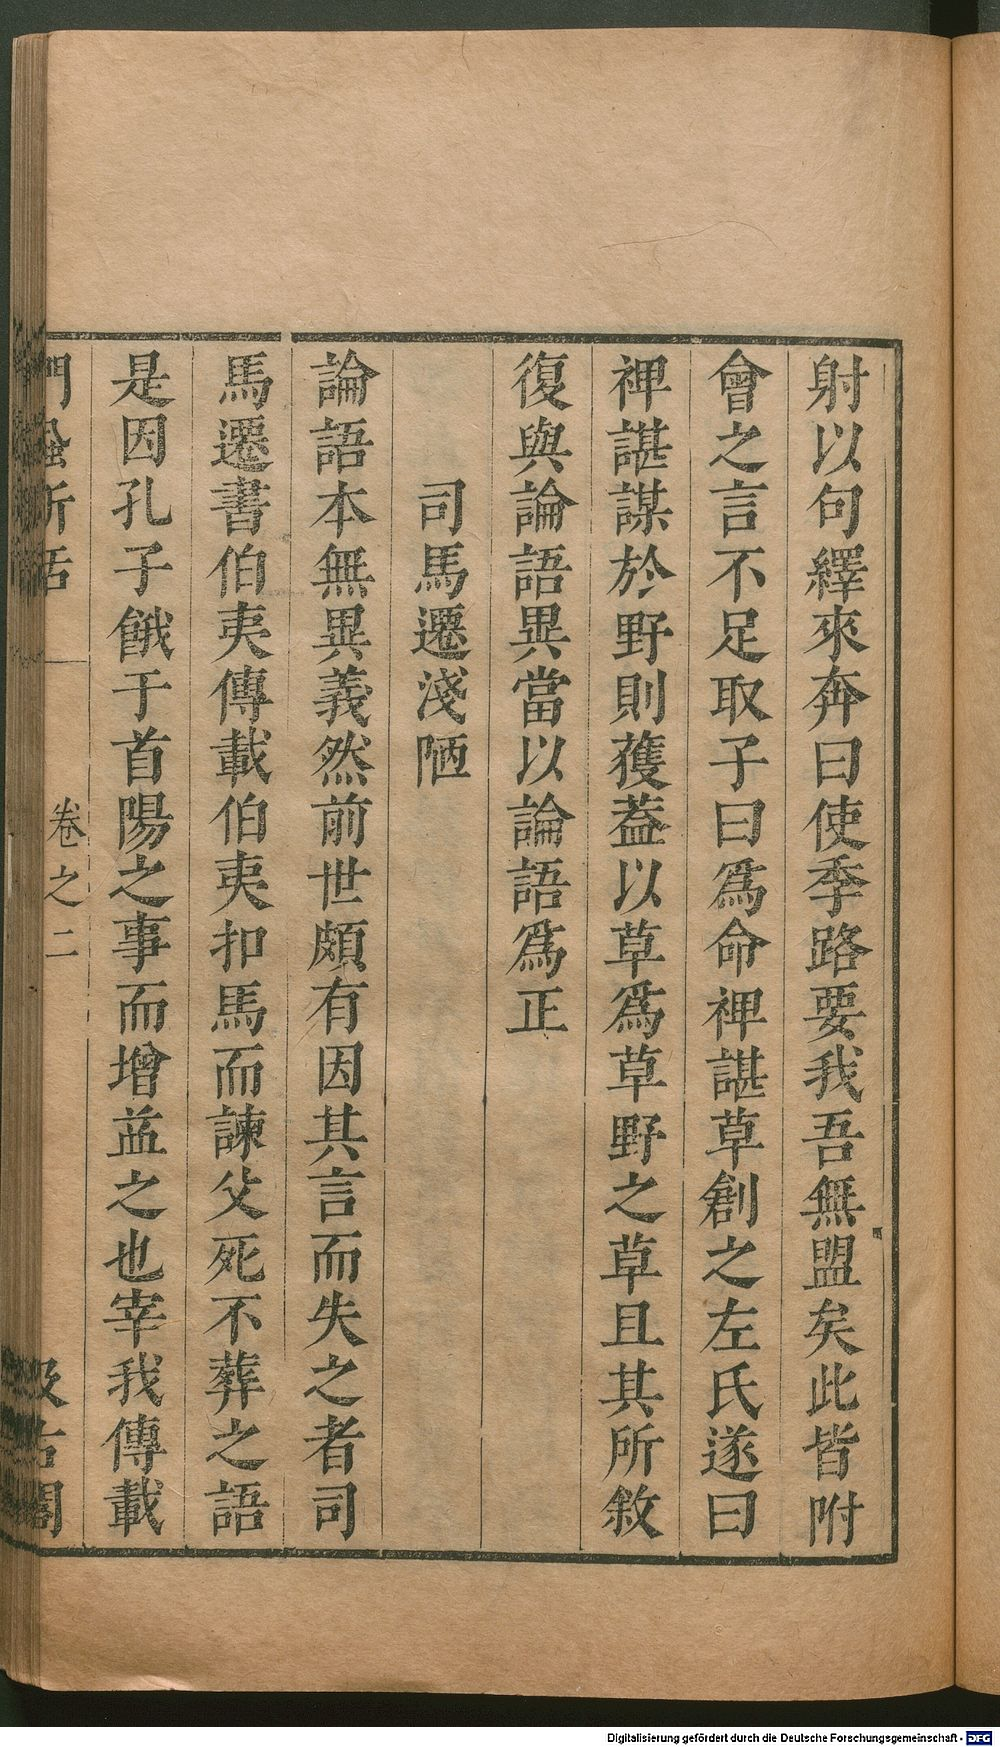 射以句繹來奔曰使季路要我吾無盟矣此皆附
會之言不足取子曰爲命裨諶草創之左氏遂曰
裨諶謀於野則獲葢以草爲草野之草且其所敘
復與論語異當以論語爲正
司馬遷淺陋
論語本無異義然前世頗有因其言而失之者司
馬遷書伯夷傳載伯夷扣馬而諫父死不葬之語
是因孔子餓于首陽之事而增益之也宰我傳載
門蝨新話
卷之二
汲古閣
Digitalisierung gefördert durch die Deutsche Forschungsgemeinschaft - DFG